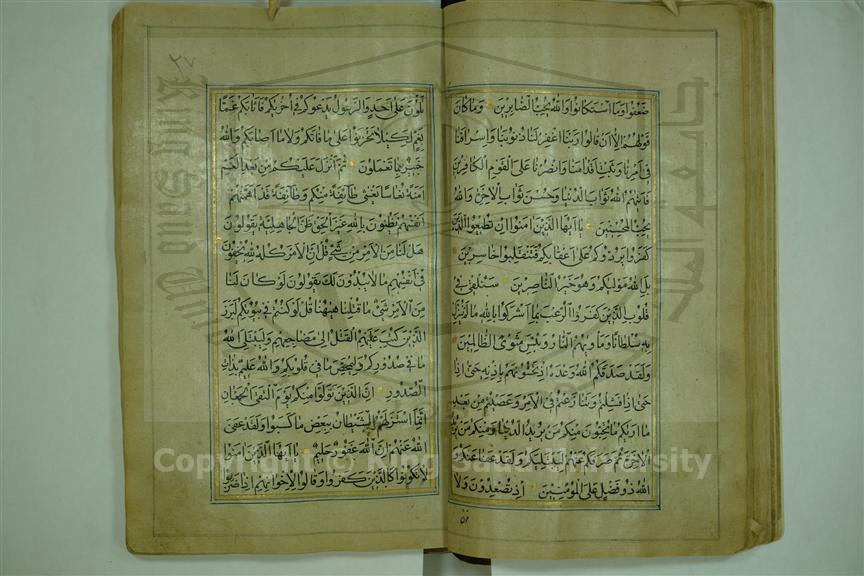 ضعفوا وما استكانوا والله يحب الصابرين وما كان
قولهم الا ان قالوا ربنا اغفر لنا ذنوبنا واسرافنا
في امرنا وثبت اقدامنا وانصرنا على القوم الكافرين
فاتيهم الله ثواب الدنيا وحسن ثواب الاخرة والله
يحب المحسنين يا ايها الذين امنوا ان تطيعوا الذين
كفروا يردوكم على اعقابكم فتنقلبوا خاسرين
بل الله موليكم وهو خير الناصرين سنلقي في
قلوب الذين كفروا الرعب بما اشركوا بالله ما لم ينزل
به سلطانا وماويهم النار وبئس مثوى الظالمين
ولقد صدقكم الله وعده اذ تحسونهم باذنه حتى اذا
حتى اذا فشلتم وتنازعتم في الامر وعصيتم من بعد
ما اريكم ما تحبون منكم من يريد الدنيا ومنكم من يريد
الاخرة ثم صرفكم عنهم ليبتليكم ولقد عفا عنكم و
الله ذو فضل على المؤمنين اذ تصعدون ولا
تلون
٢٧
تلون على احد والرسول يدعوكم في اخريكم فاثابكم غما
بغم لكيلا تحزنوا على ما فاتكم ولا ما اصابكم والله
خبير بما تعملون ثم انزل عليكم من بعد الغم
امنة نعاسا يغشى طائفة منكم وطائفة قد اهمتهم
انفسهم يظنون بالله غير الحق ظن الجاهلية يقولون
هل لنا من الامر من شيء قل ان الامر كله لله يخفون
في انفسهم ما لا يبدون لك يقولون لو كان لنا
من الامر شيء ما قتلنا ههنا قل لو كنتم في بيوتكم لبرز
الذين كتب عليهم القتل الى مضاجعهم وليبتلي الله
ما في صدوركم وليمحص ما في قلوبكم والله عليم بذات
الصدور ان الذين تولوا منكم يوم التقى الجمعان
انما استزلهم الشيطان ببعض ما كسبوا ولقد عفى
الله عنهم ان الله غفور حليم يا ايها الذين امنوا
لا تكونوا كالذين كفروا وقالوا لاخوانهم اذا ضربوا
Copyright © King Saud University
King Saud University
جامعة الملك